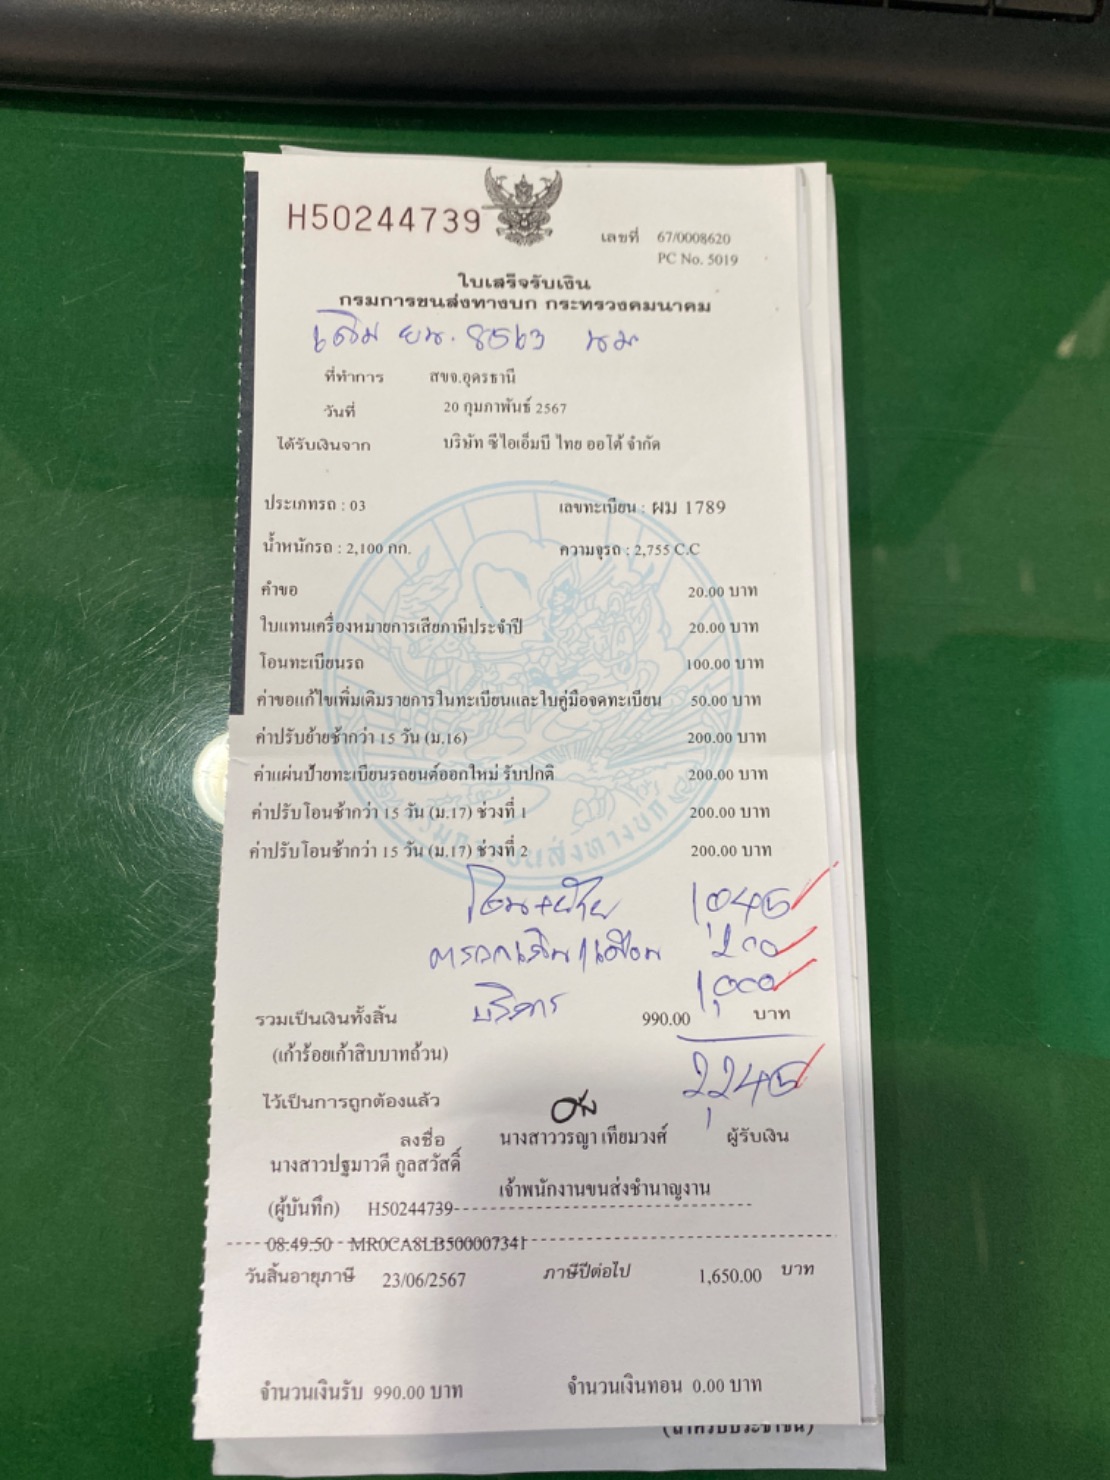 H50244739
เลขที่ 67/0008620
PC No. 5019
ใบเสร็จรับเงิน
กรมการขนส่งทางบก กระทรวงคมนาคม
เดิม ยน. 8563 นม
ที่ทำการ สขจ.อุดรธานี
วันที่ 20 กุมภาพันธ์ 2567
ได้รับเงินจาก บริษัท ซีไอเอ็มบี ไทย ออโต้ จำกัด
ประเภทรถ : 03 เลขทะเบียน : ผม 1789
น้ำหนักรถ : 2,100 กก. ความจุรถ : 2,755 C.C
คำขอ 20.00 บาท
ใบแทนเครื่องหมายการเสียภาษีประจำปี 20.00 บาท
โอนทะเบียนรถ 100.00 บาท
ค่าขอแก้ไขเพิ่มเติมรายการในทะเบียนและใบคู่มือจดทะเบียน 50.00 บาท
ค่าปรับย้ายช้ากว่า 15 วัน (ม.16) 200.00 บาท
ค่าแผ่นป้ายทะเบียนรถยนต์ออกใหม่ รับปกติ 200.00 บาท
ค่าปรับโอนช้ากว่า 15 วัน (ม.17) ช่วงที่ 1 200.00 บาท
ค่าปรับโอนช้ากว่า 15 วัน (ม.17) ช่วงที่ 2 200.00 บาท
โอน+ย้าย 1,045
200
บริการ 1,000
รวมเป็นเงินทั้งสิ้น 990.00 บาท
(เก้าร้อยเก้าสิบบาทถ้วน)
2,245
ไว้เป็นการถูกต้องแล้ว
ลงชื่อ นางสาววรญา เทียมวงศ์ ผู้รับเงิน
นางสาวปฐมาวดี กูลสวัสดิ์
เจ้าพนักงานขนส่งชำนาญงาน
(ผู้บันทึก) H50244739
08:49:50 MR0CA8LB500007341
วันสิ้นอายุภาษี 23/06/2567 ภาษีปีต่อไป 1,650.00 บาท
จำนวนเงินรับ 990.00 บาท จำนวนเงินทอน 0.00 บาท
(สำหรับประชาชน)